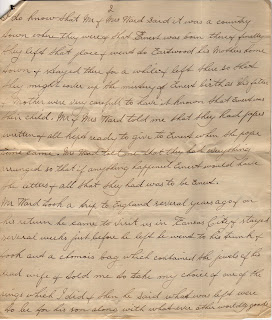 2
I do know that Mr & Mrs Ward said it was a country
town where they were & that Ernest was born there & finally
they left that place & went to Eastwood his Mothers home
town & stayed there for a while & left there so that
they might cover up the mystery of Ernest birth as his father
& Mother were very careful to have it known that Ernest was
their child. Mr & Mrs Ward told me that they had papers
written & all ready to give to Ernest when the
came. Mr Ward that they had everything
arranged so that if anything happened Ernest would have
the letters & all that they had was to be Ernest.
Mr Ward took a trip to England several years ago & on
his return he came to visit us in Kansas City & stayed
several weeks just before he left he went to his trunk &
took out a chamois bag which contained the jewels of his
dead wife & told me to take my choice of one of the
rings which I did & then he said what was left were
to be for his son along with what ever other worldly goods